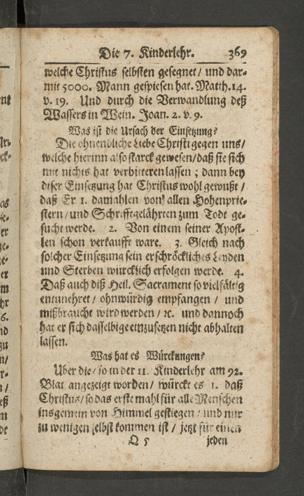 Die 7. Kinderlehr. 369
welche Christus selbsten gesegnet / und dar-
mit 5000. Mann gespiesen hat. Matth. 14.
v. 19. Und durch die Verwandlung deß
Wassers in Wein. Joan. 2. v. 9.
Was ist die Ursach der Einsetzung?
Die ohnendliche Liebe Christi gegen uns /
welche hierinn also starck gewesen / daß sie sich
mit nichts hat verbitteren lassen ; dann bey
diser Einsetzung hat Christus wohl gewußt /
daß Er 1. damahlen von allen Hohenprie-
stern / und Schrifftgelährten zum Todt ge-
sucht werde. 2. Von einem seiner Apost-
len schon verkaufft ware. 3. Gleich nach
solcher Einsetzung sein erschröckliches Leyden
und Sterben würcklich erfolgen werde. 4.
Daß auch diß Heil. Sacrament so vielfältig
entunehret / ohnwürdig empfangen / und
mißbraucht wird werden / ꝛc. und dannoch
hat er sich dasselbige einzusetzen nicht abhalten
lassen.
Was hat es Würckungen?
Uber die / so in der 11. Kinderlehr am 92.
Blat angezeigt worden / würckt es 1. daß
Christus / so das erste mahl für alle Menschen
insgemein von Himmel gestiegen / und nur
zu wenigen selbst kommen ist / jetzt für einen
Q 5 jeden